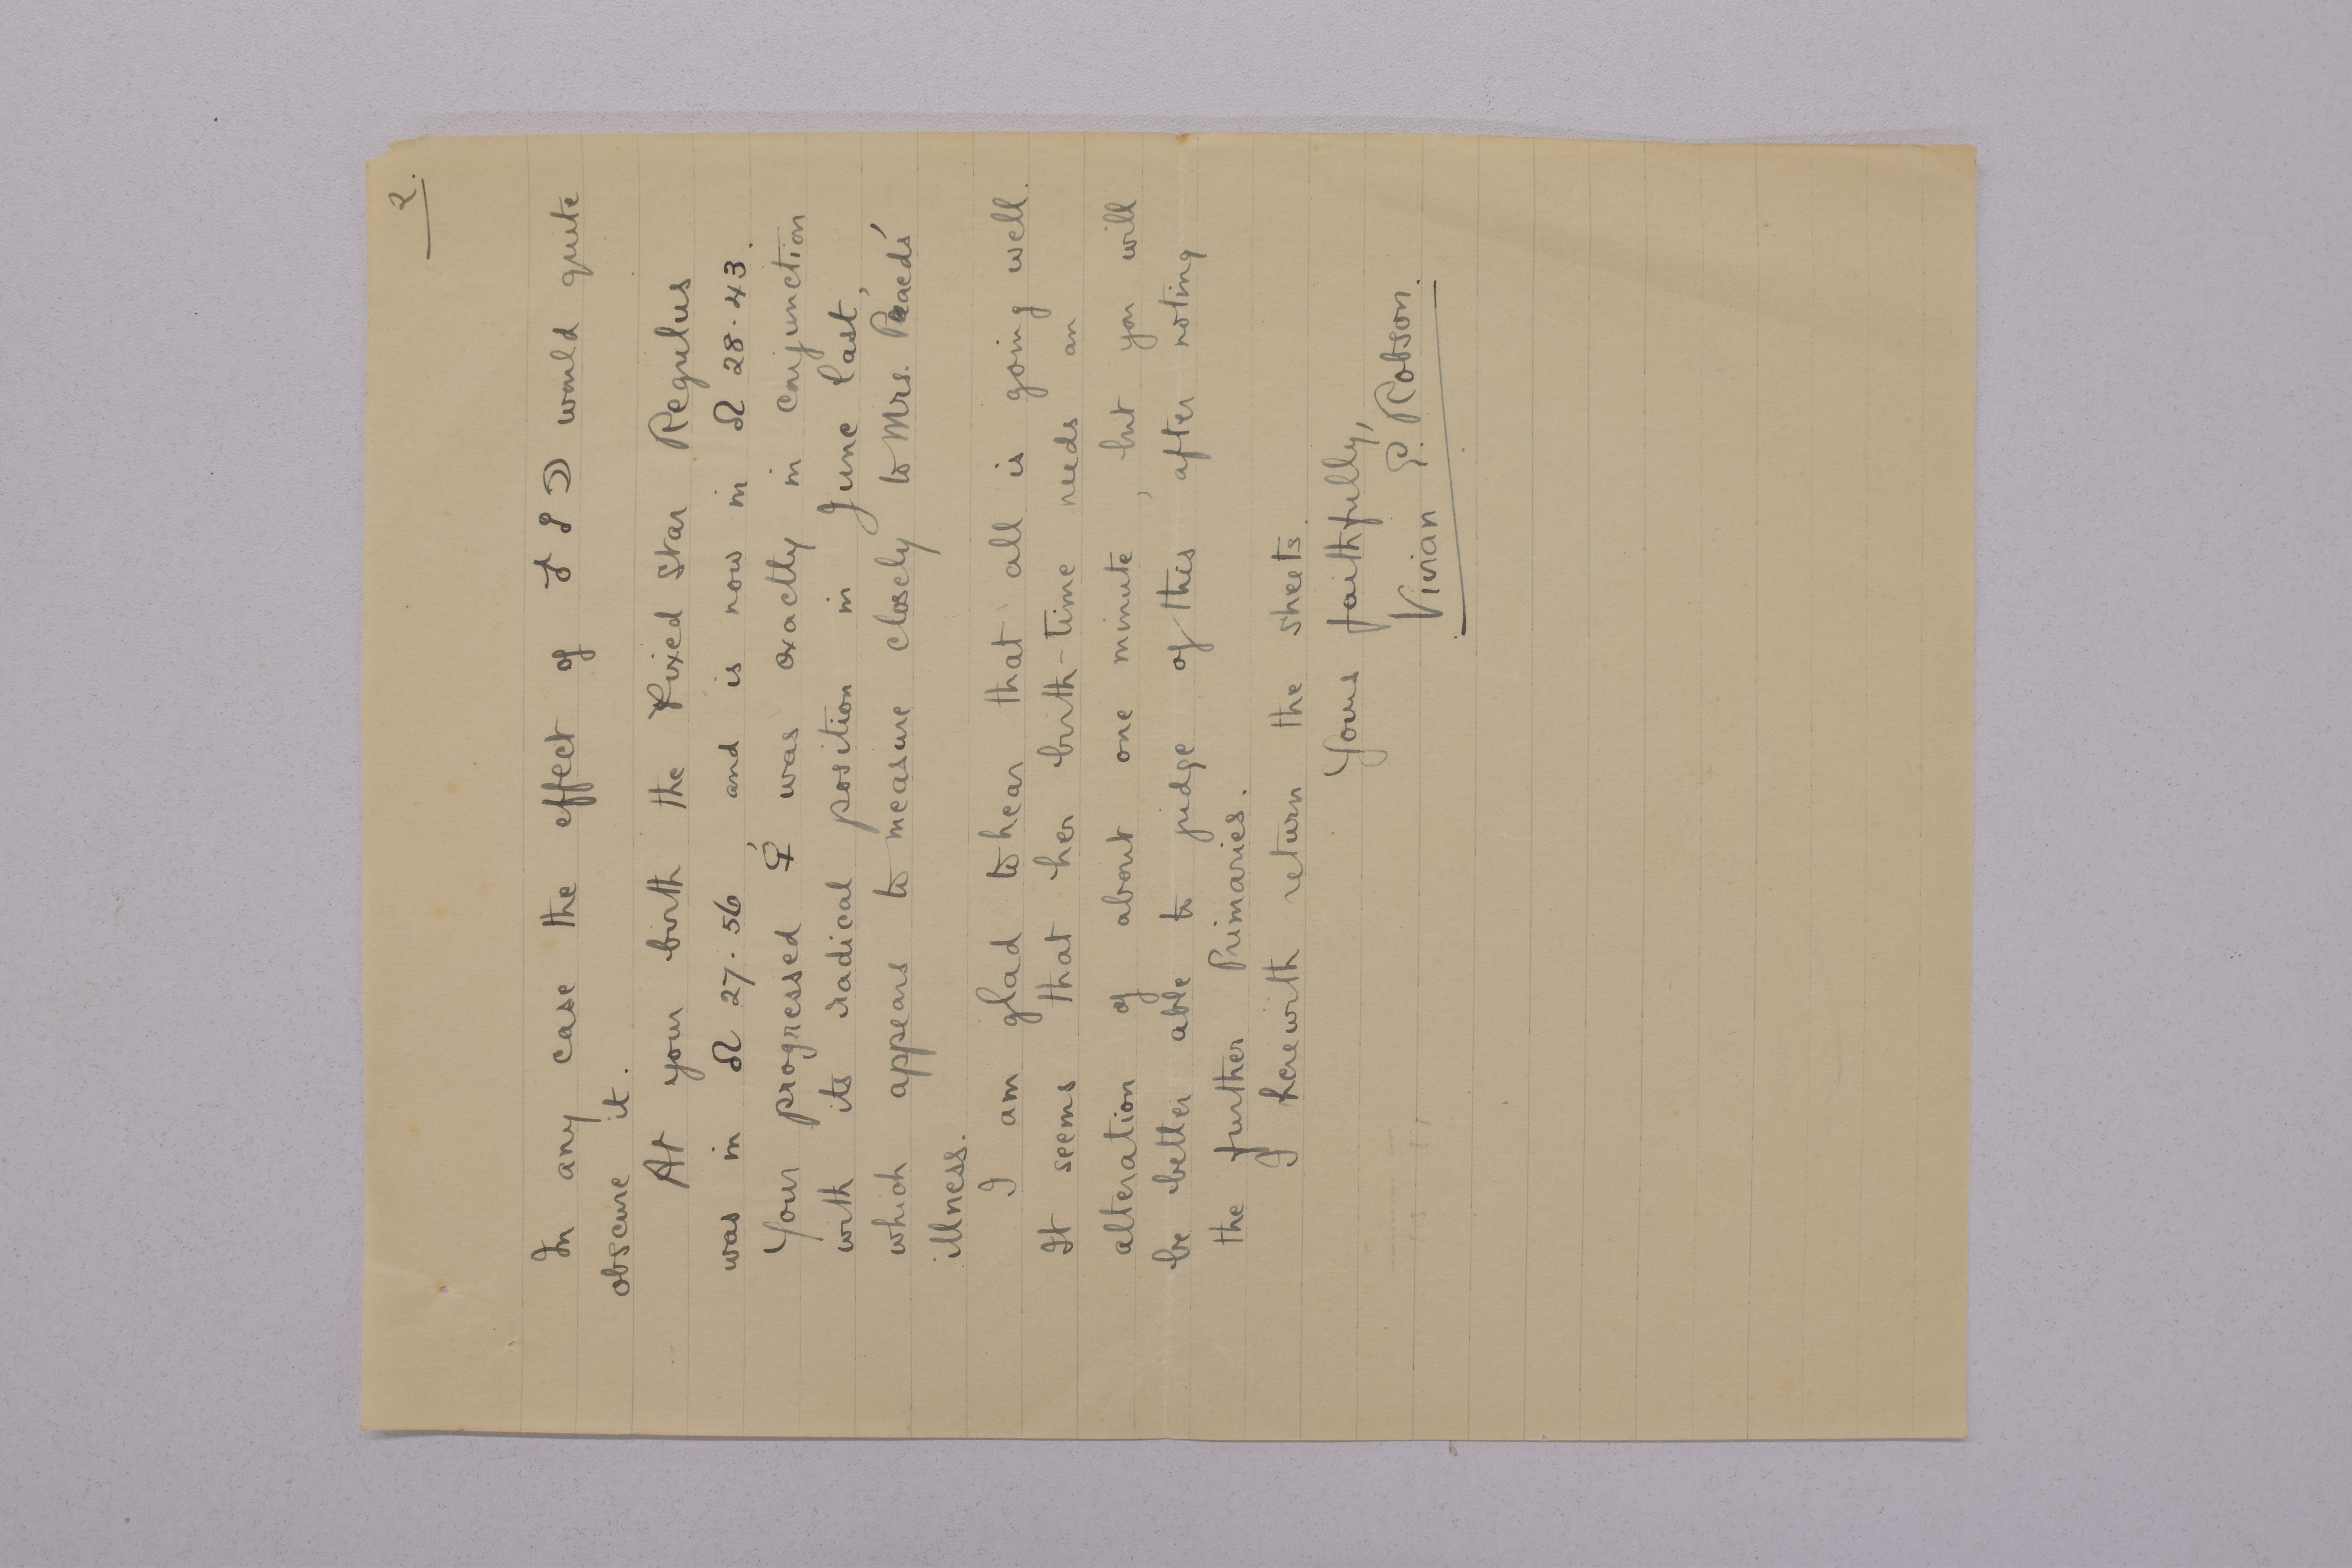 2.
In any case the effect of ♂ ☍ ☽ would quite
obscure it.
At your birth the Fixed Star Regulus
was in ♌ 27.56 and is now in ♌ 28.43.
Your progressed ☿' was exactly in conjunction
with its radical position in June last,
which appears to measure closely to Mrs.
illness.
I am glad to hear that all is going well.
It seems that her birth-time needs an
alteration of about one minute, but you will
be better able to judge of this after noting
the further Primaries.
I herewith return the sheets.
Yours faithfully,
Vivian E. Robson.